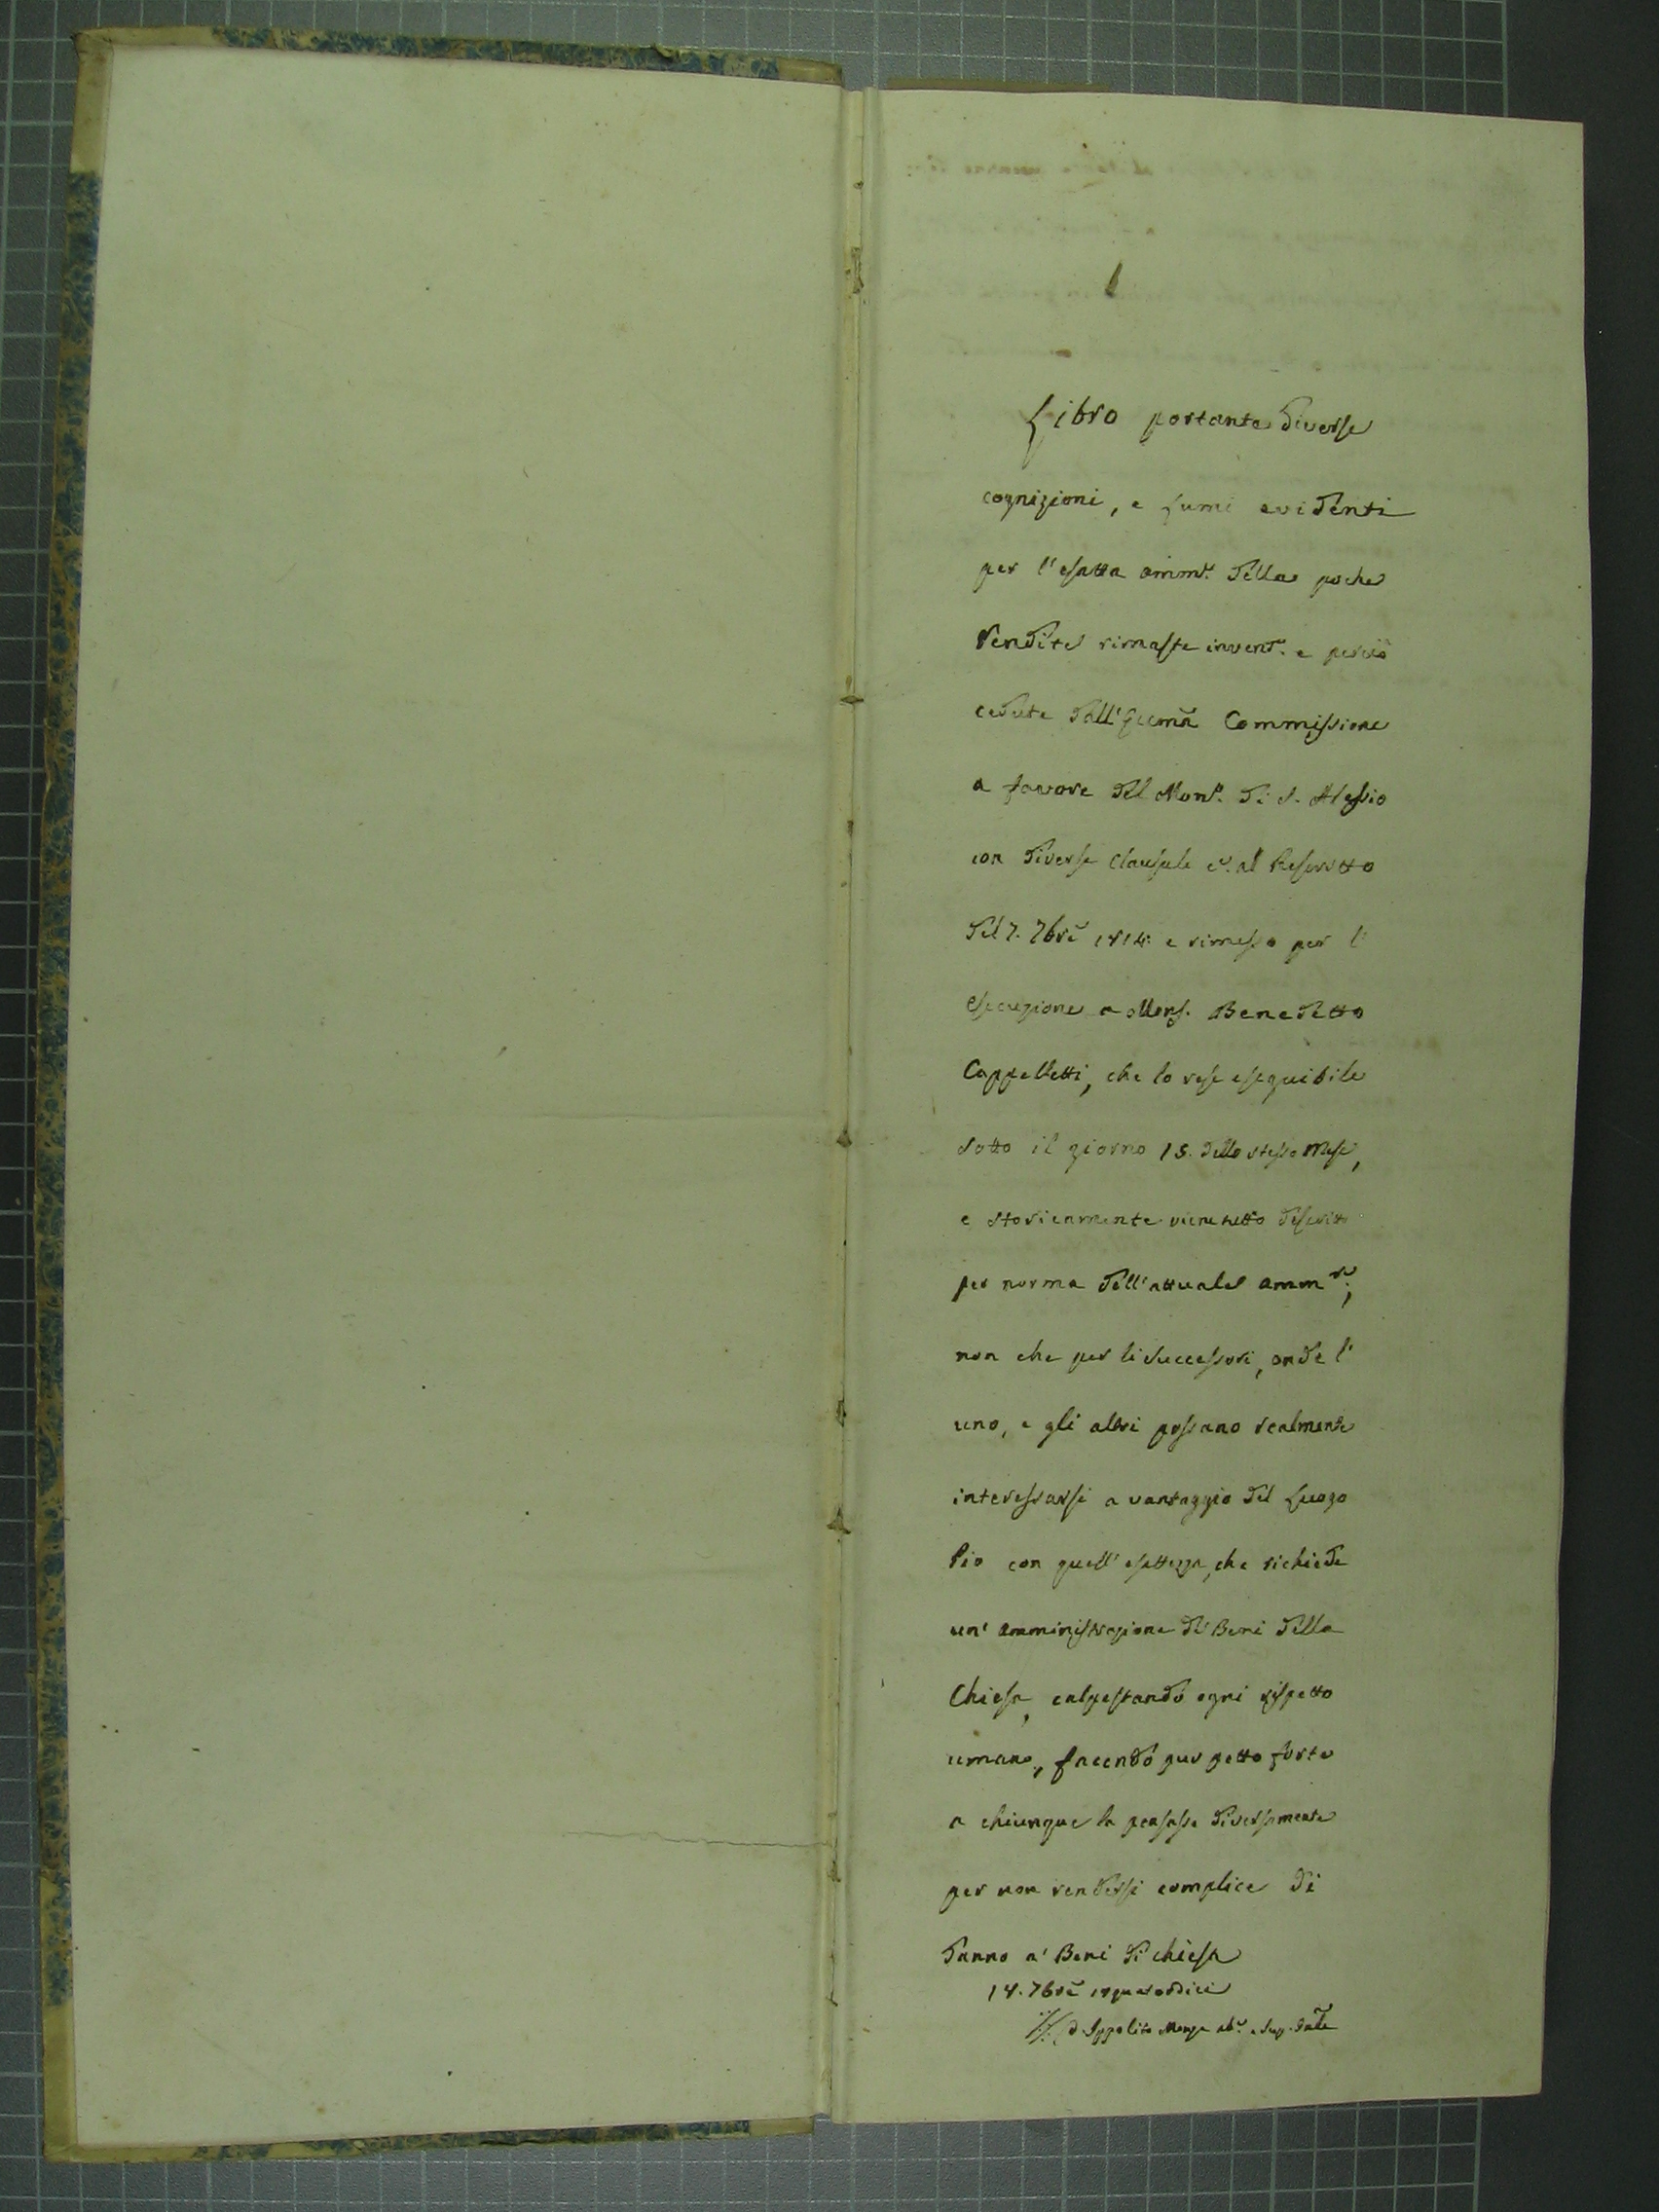 Libro portante diverse
cognizioni, e lumi evidenti
per l'esatta amm.e delle poche
Rendite rimaste invend.e e perciò
cedute dall'Ecc̃ma Commissione
a favore del Mon.o di S. Alessio
con diverse clausule c.e al Rescritto
del 7. 7bre 1814. e rimesso per l'
esecuzione a Mons. Benedetto
Cappelletti, che lo rese eseguibile
sotto il giorno 15. dello stesso Mese,
e storicamente viene tutto descritto
per norma dell'attuale Amm.re,
non che per li successori, onde l'
uno, e gli altri possano realmente
interessarsi a vantaggio del Luogo
Pio con quell'esattezza, che richiede
un' amministrazione de' Beni della
Chiesa, calpestando ogni rispetto
umano, facendo pur petto forte
a chiunque la pensasse diversamente
per non rendersi complice di
danno a' Beni di chiesa
14. 7bre
D. Ippolito